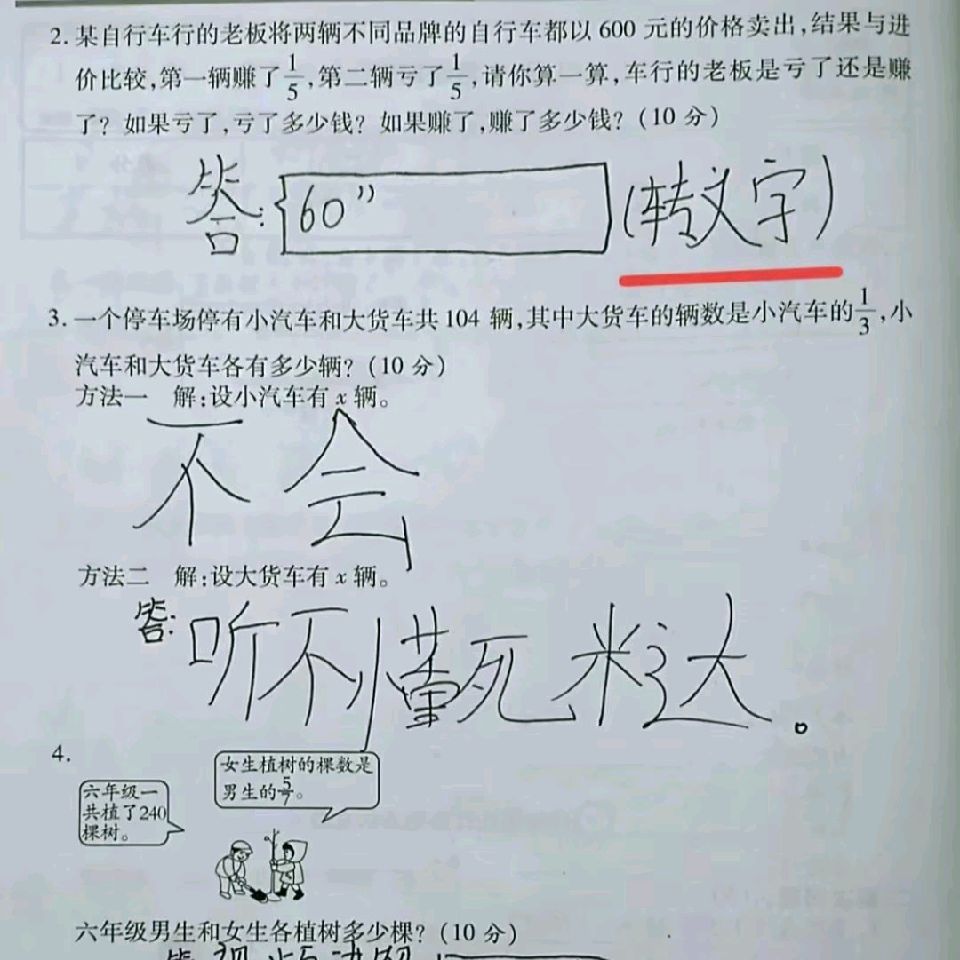 2. 某自行车行的老板将两辆不同品牌的自行车都以 600 元的价格卖出,结果与进
价比较,第一辆赚了1/5,第二辆亏了1/5,请你算一算,车行的老板是亏了还是赚
了?如果亏了,亏了多少钱?如果赚了,赚了多少钱?(10 分)
答: 60” (转文字)
3. 一个停车场停有小汽车和大货车共 104 辆,其中大货车的辆数是小汽车的1/3,小
汽车和大货车各有多少辆?(10 分)
方法一 解:设小汽车有 x 辆。
不会
方法二 解:设大货车有 x 辆。
答: 听不懂死米达。
4.
女生植树的棵数是
男生的5/7。
六年级一
共植了240
棵树。
六年级男生和女生各植树多少棵?(10 分)